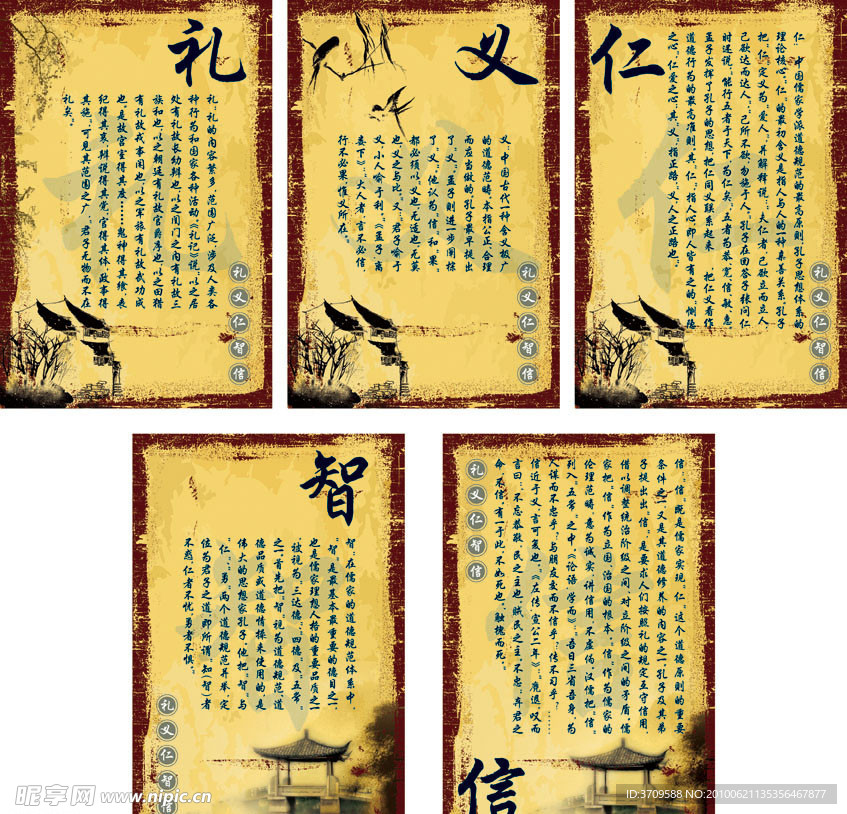 礼
礼:礼的内容繁多,范围广泛,涉及人类各
种行为和国家各种活动。《礼记》说:以之居
处有礼故长幼辩也,以之闺门之内有礼故三
族和也,以之朝廷有礼故官爵序也,以之田猎
有礼故戎事闲也,以之军旅有礼故武功成
也。是故宫室得其度……鬼神得其飨,丧
纪得其哀,辩说得其党,官得其体,政事得
其施。可见其范围之广,君子无物而不在
礼矣。
礼
义
仁
智
信
义
义:中国古代一种含义极广
的道德范畴。本指公正、合理
而应当做的。孔子最早提出
了义。孟子则进一步阐释
了“义”。他认为“信”和“果”
都必须以“义”也,无适也,无莫
也,义之与比。”义“君子喻于
义,小人喻于利。”《孟子·离
娄下》:“大人者,言不必信,
行不必果,惟义所在。”
礼
义
仁
智
信
仁
仁:中国儒家学派道德规范的最高原则。孔子思想体系的
理论核心。仁的最初含义是指人与人的一种亲善关系。孔子
把“仁”定义为“爱人”,并解释说:“夫仁者,己欲立而立人,
己欲达而达人”;“己所不欲,勿施于人”。孔子在回答子张问仁
时还说:“能行五者于天下,为仁矣。”五者为恭宽信敏惠。
孟子发挥了孔子的思想,把仁同义联系起来,把仁义看作
道德行为的最高准则。其“仁”,指人心,即人皆有之的“恻隐
之心”,仁爱之心;其“义”,指正路,“义,人之正路也”。
礼
义
仁
智
信
智
智:在儒家的道德规范体系中,
“智”是最基本最重要的德目之一,
也是儒家理想人格的重要品质之一,
被视为“三达德”、“四德”及“五常”
之一。首先把“智”视为道德规范、道
德品质或道德情操来使用的,是
伟大的思想家孔子。他把“智”与
“仁”、“勇”两个道德规范并举,定
位为君子之道,即所谓“知(智)者
不惑,仁者不忧,勇者不惧。”
礼
义
仁
智
信
礼
义
仁
智
信
信:信,既是儒家实现“仁”这个道德原则的重要
条件之一,又是其道德修养的内容之一。孔子及其弟
子提出“信”,是要求人们按照礼的规定互守信用,
借以调整统治阶级之间、对立阶级之间的矛盾。儒
家把“信”作为立国、治国的根本。“信”作为儒家的
伦理范畴,意为诚实,讲信用,不虚伪。汉儒把“信”
列入“五常”之中。《论语·学而》:“吾日三省吾身,为
人谋而不忠乎?与朋友交而不信乎?传不习乎?”
信近于义,言可复也。《左传·宣公二年》:麑退,叹而
言曰:不忘恭敬,民之主也。贼民之主,不忠;弃君之
命,不信。有一于此,不如死也。触槐而死。
信
昵享网 www.nipic.cn
ID:3709588 NO:20100621135356467877